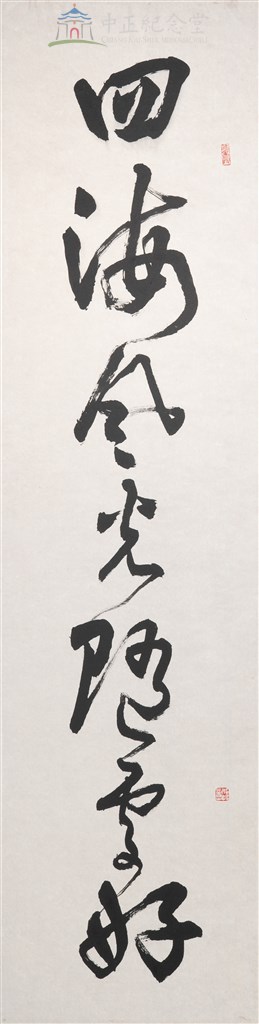 中正紀念堂
四海風光隨處好